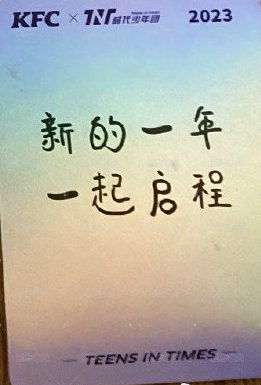 KFC × TNT 时代少年团 2023
新的一年
一起启程
— TEENS IN TIMES —